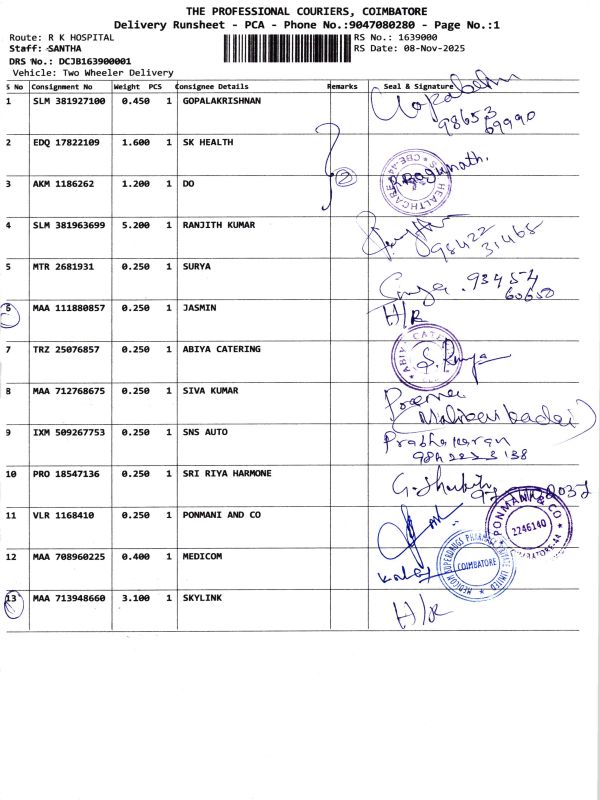 THE PROFESSIONAL COURIERS, COIMBATORE
Delivery Runsheet - PCA - Phone No.:9047080280 - Page No.:1
Route: R K HOSPITAL RS No.: 1639000
Staff: SANTHA RS Date: 08-Nov-2025
DRS No.: DCJB163900001
Vehicle: Two Wheeler Delivery
S No Consignment No Weight PCS Consignee Details Remarks Seal & Signature
1 SLM 381927100 0.450 1 GOPALAKRISHNAN Gopalakn
98653
69990
2 EDQ 17822109 1.600 1 SK HEALTH 2 Ragunath.
HEALTHCARE CBE-44
3 AKM 1186262 1.200 1 DO
4 SLM 381963699 5.200 1 RANJITH KUMAR 98422
31465
5 MTR 2681931 0.250 1 SURYA Surya. 93454
60650
6 MAA 111880857 0.250 1 JASMIN H/R
7 TRZ 25076857 0.250 1 ABIYA CATERING S. Ramya
8 MAA 712768675 0.250 1 SIVA KUMAR
9 IXM 509267753 0.250 1 SNS AUTO Prabhakaran
10 PRO 18547136 0.250 1 SRI RIYA HARMONE
11 VLR 1168410 0.250 1 PONMANI AND CO
PONMANI & CO
2246140
COIMBATORE-44
12 MAA 708960225 0.400 1 MEDICOM
COIMBATORE
13 MAA 713948660 3.100 1 SKYLINK H/R